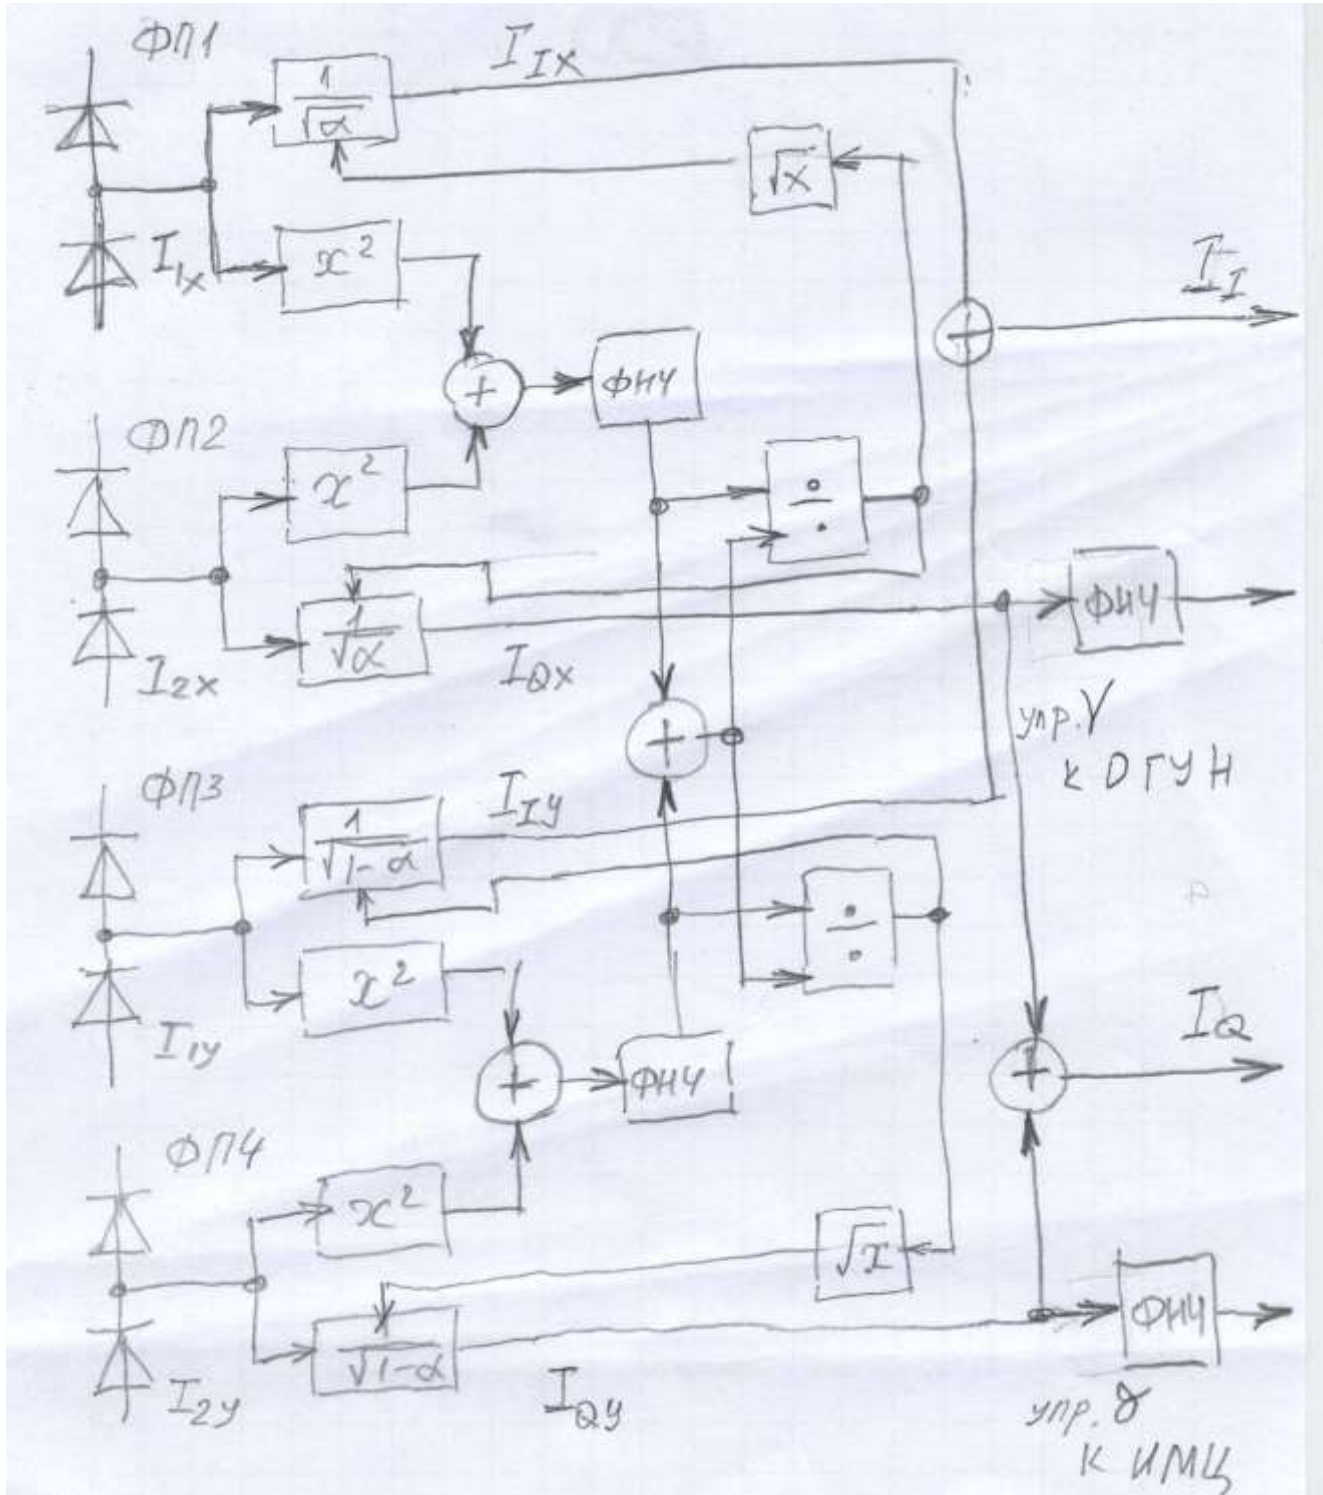 ФП1
1
√α
I_IX
√x
I_1X
x²
I_I
+
+
ФНЧ
ФП2
x²
÷
1
√α
ФНЧ
I_2X
I_QX
+
упр. γ
к ОГУН
ФП3
I_IY
1
√1-α
÷
x²
I_1Y
+
ФНЧ
+
I_Q
ФП4
x²
√x
1
√1-α
ФНЧ
I_2Y
I_QY
упр. δ
к ИМЦ